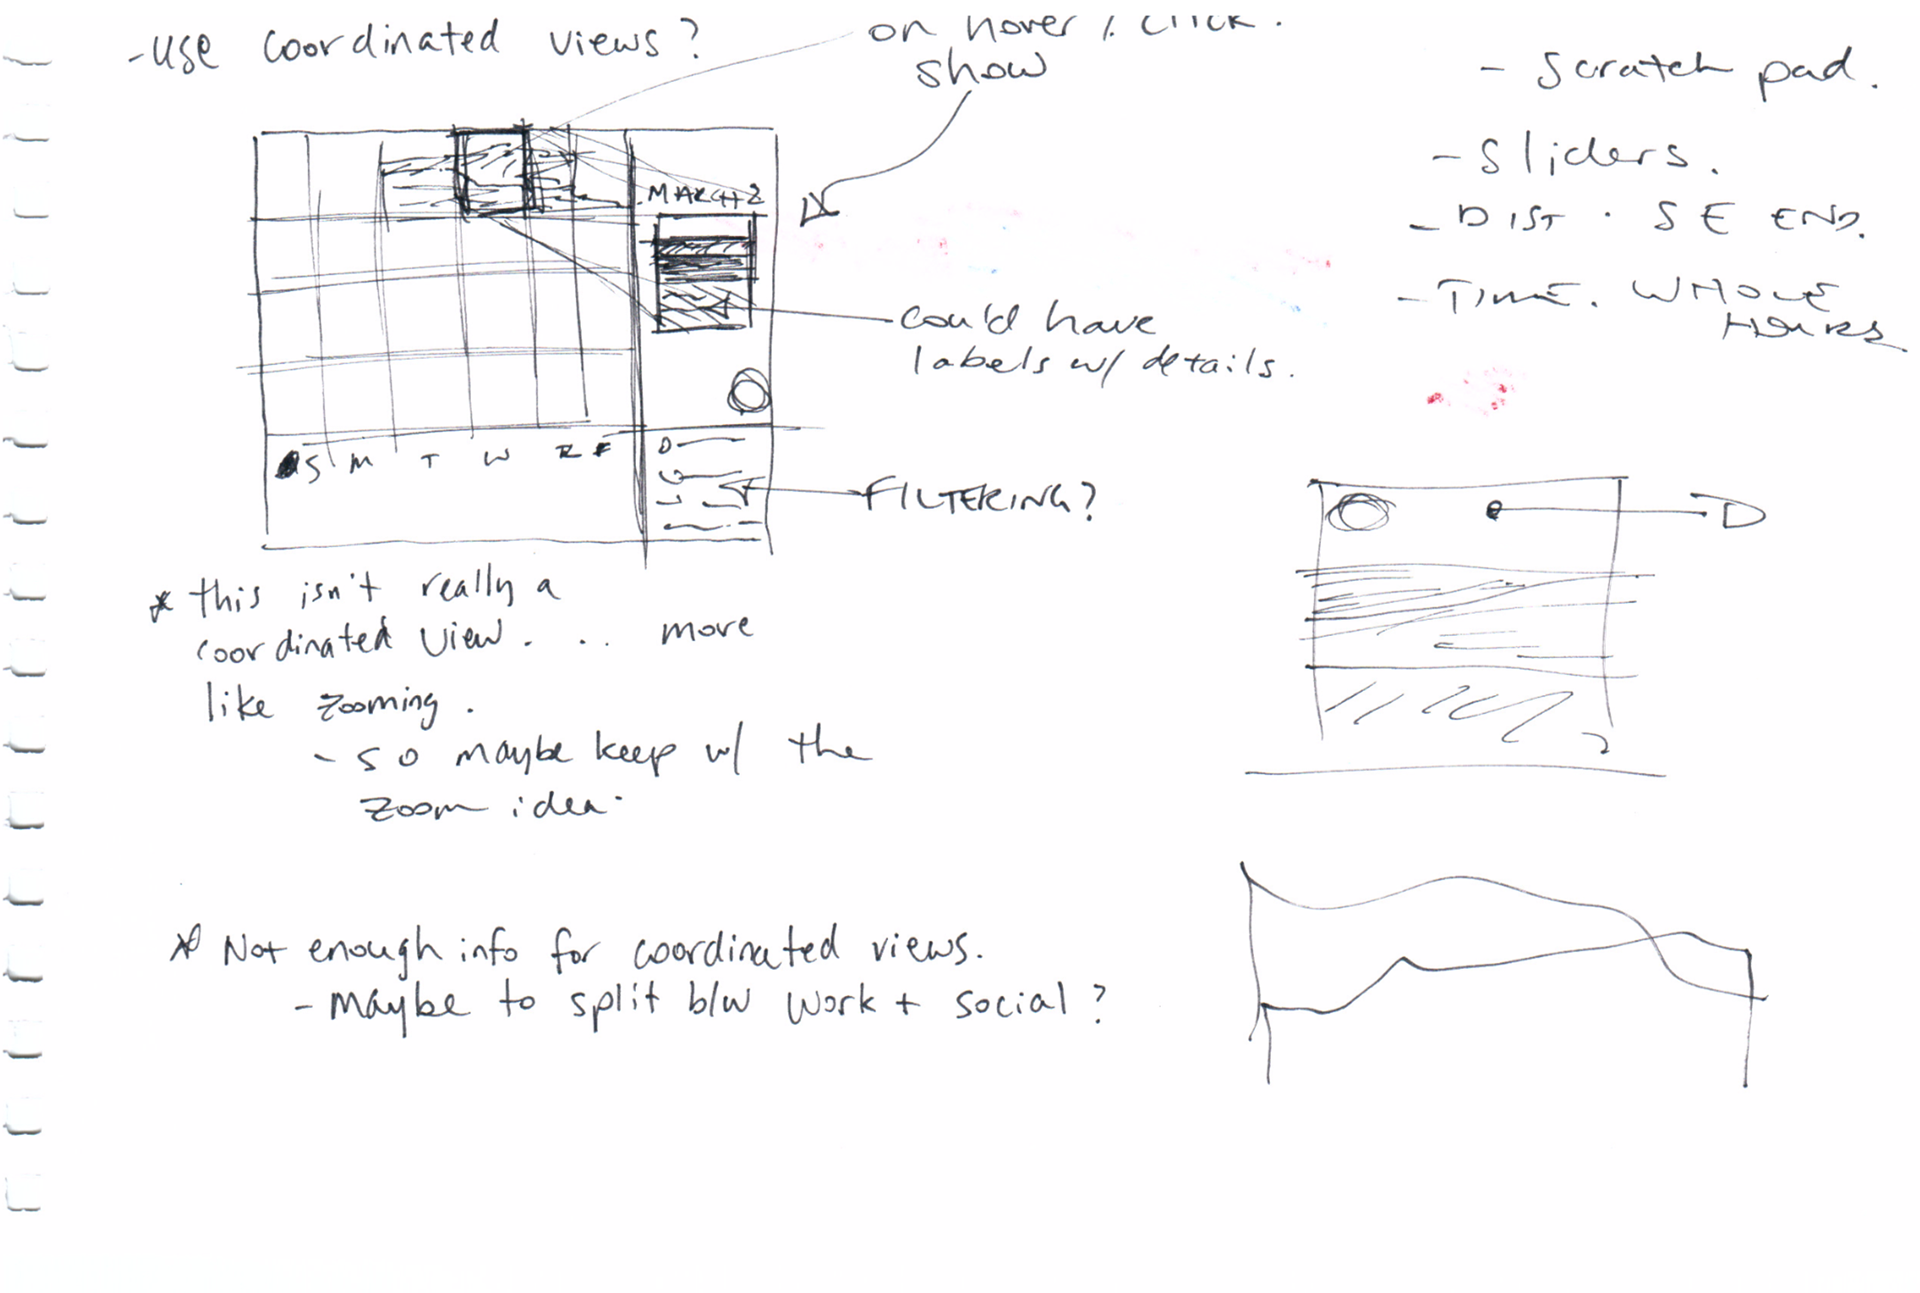 - use coordinated views?
on hover / click.
show
MARCH 2
could have
labels w/ details.
S M T W R F
FILTERING?
* this isn't really a
coordinated view. . . more
like zooming.
- so maybe keep w/ the
zoom idea.
* Not enough info for coordinated views.
- Maybe to split b/w work + social?
- Scratch pad.
- Sliders.
- DIST. SE END.
- TIME. WHOLE
HOURS
D